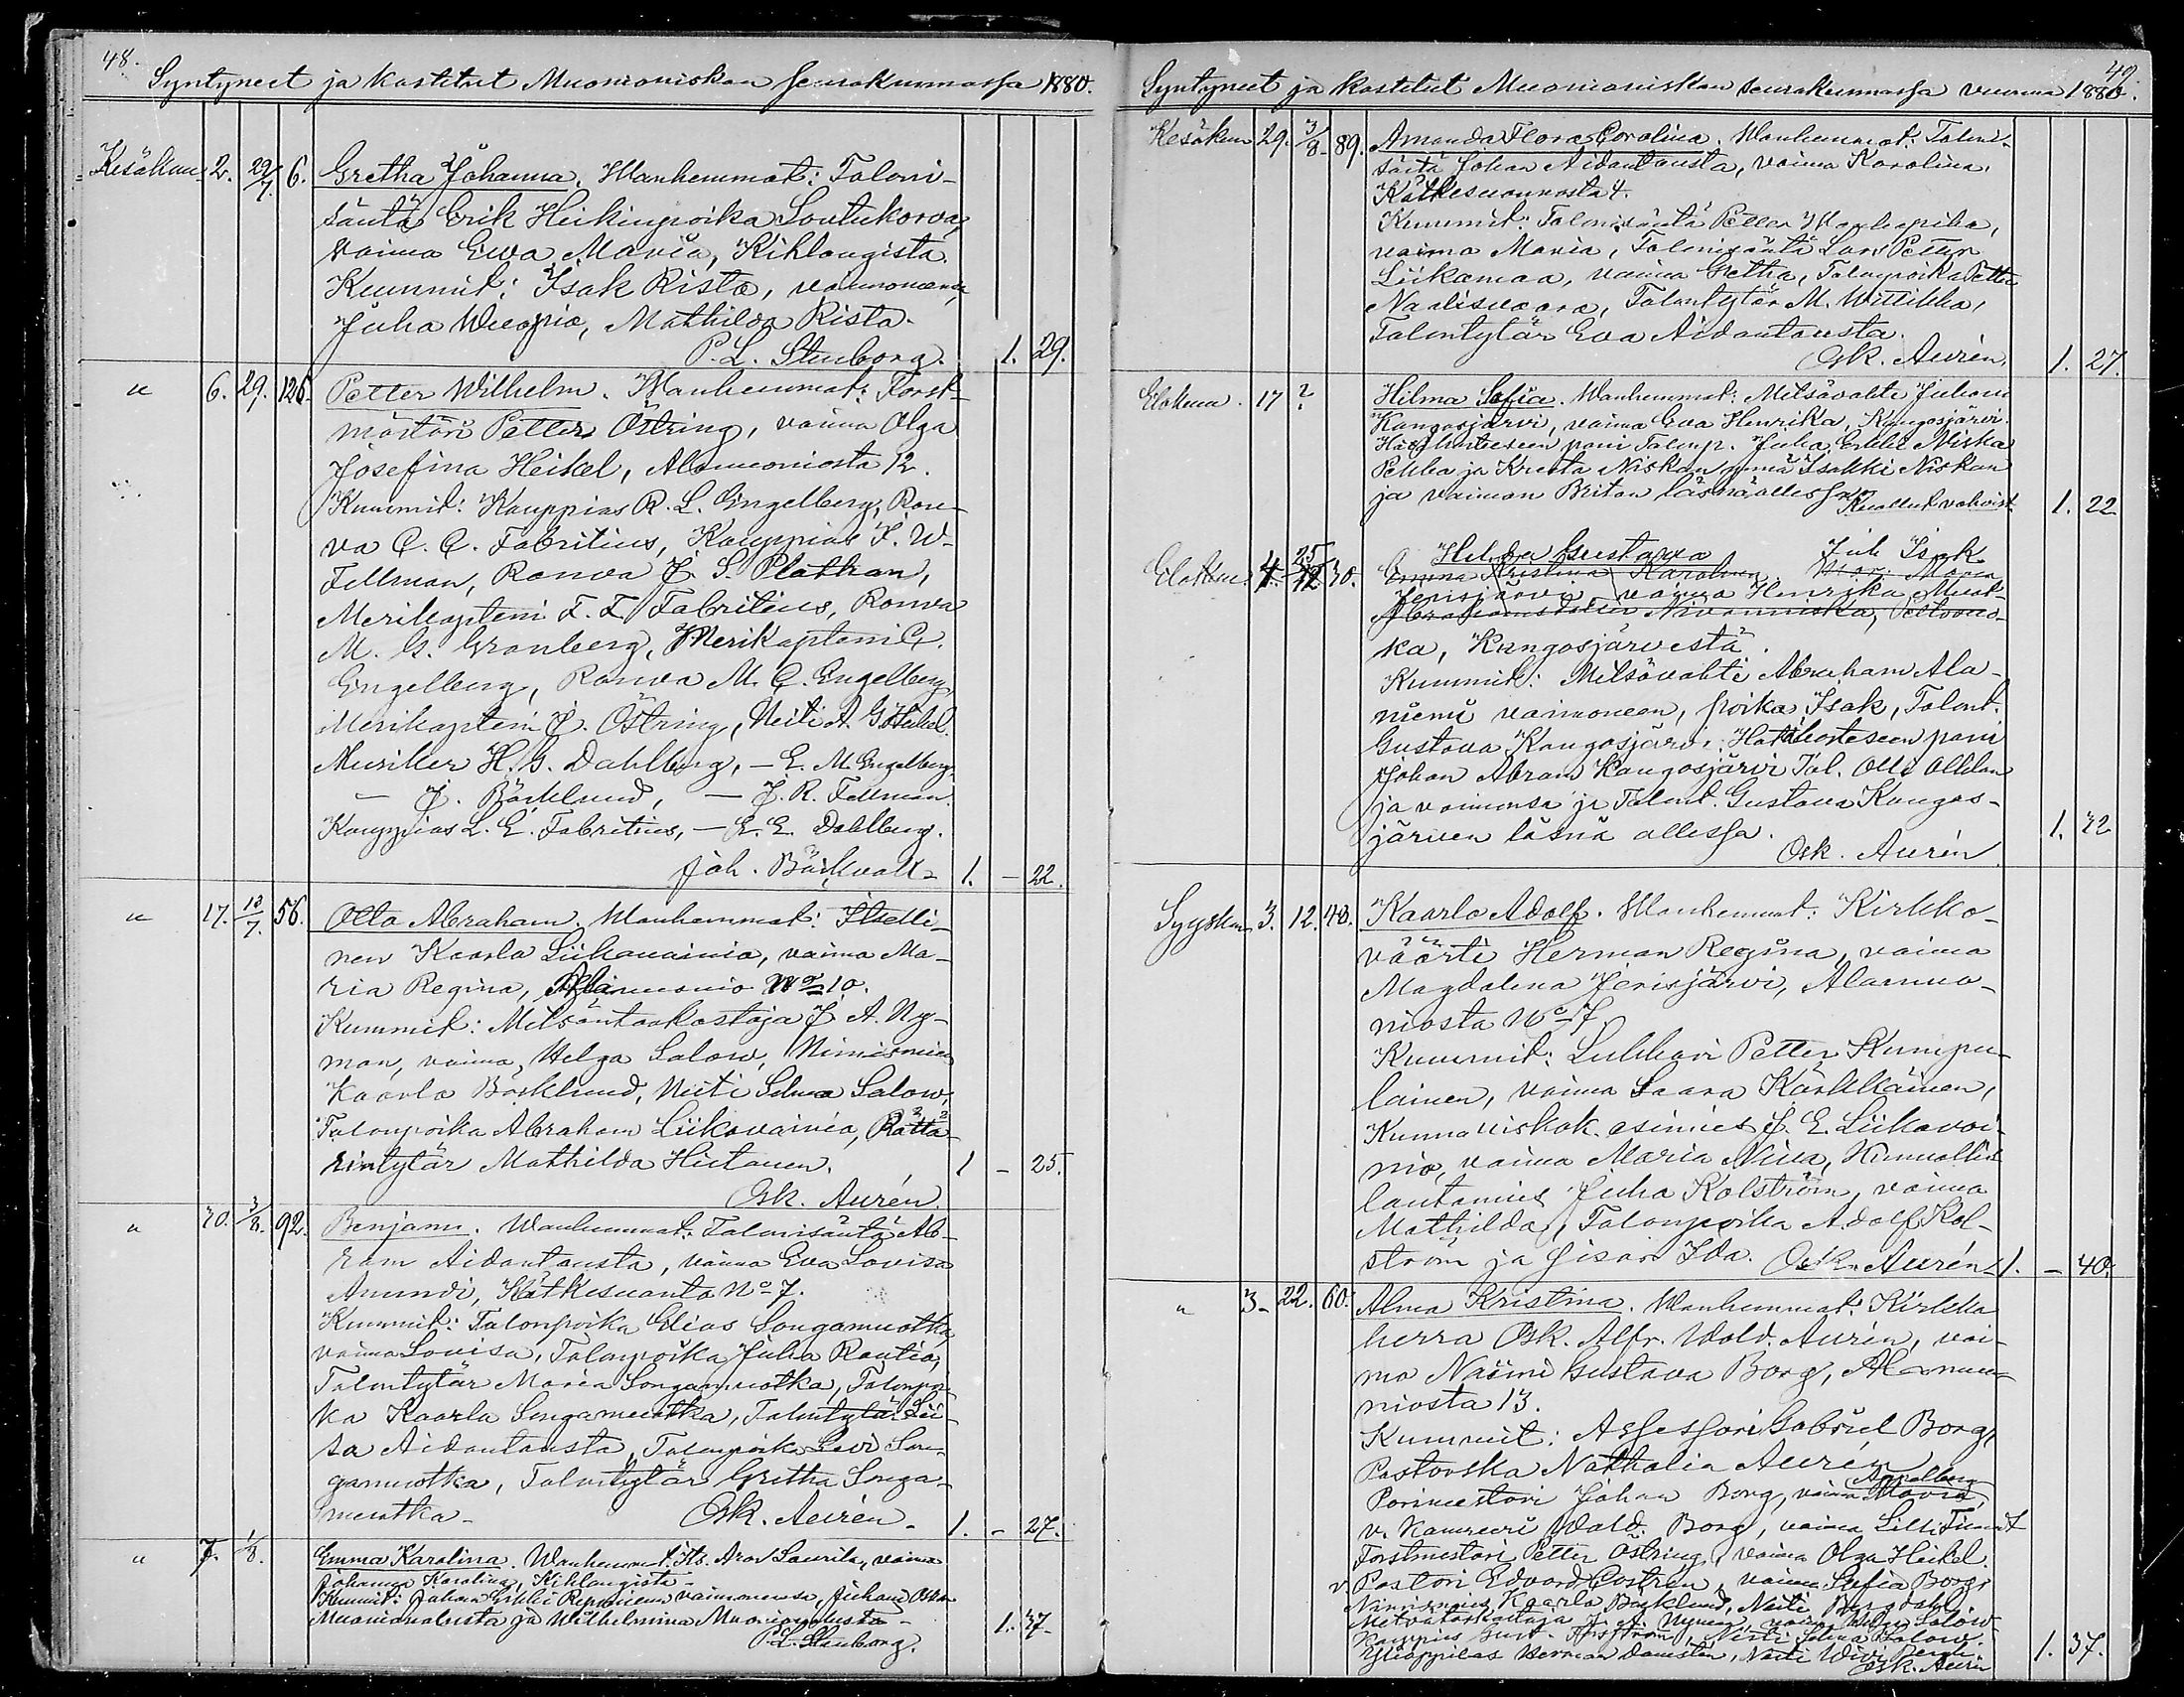 48.
Syntyneet ja kastetut Muonioniskan seurakunnassa 1880.
Kesäkuu 2. 29/7. 6. Gretha Johanna. Wanhemmat: Taloni-
säntä Erik Heikinpoika Soutukorva,
vaimo Ewa Maria, Kihlangista.
Kummit: Isak Rista, vaimonensa,
Juha Wuopio, Mathilda Rista.
P. L. Stenborg. 1. 29.
" 6. 29. 126. Petter Wilhelm. Wanhemmat: Forst-
mästäri Petter Östring, vaimo Olga
Josefina Heikel, Alamuoniosta 12.
Kummit: Kauppias R. L. Engelberg, Rou-
va C. C. Fabritius, Kauppias F. W.
Fellman, Rouva J. S. Plathan,
Merikapteni F. F. Fabritius, Rouva
M. G. Granberg, Merikapteni C.
Engelberg, Rouva M. C. Engelberg,
Merikapteni J. Östring, Neiti A. G. Heikel.
Nuriller H. G. Dahlberg, — E. M. Engelberg,
— J. Bäcklund, — J. R. Fellman.
Kauppias L. E. Fabritius, — E. E. Dahlberg.
Joh. Bäckvall 1. – 22.
" 17. 18/7. 56. Otto Abraham. Wanhemmat: Itselli-
nen Kaarlo Liikavainio, vaimo Ma-
ria Regina, Alamuonio No 10.
Kummit: Metsäntarkastaja J. A. Ny-
man, vaimo, Helga Salow, Nimismies
Kaarlo Bäcklund, Neiti Selma Salow,
Talonpoika Abraham Liikavainio, Rättä-
rintytär Mathilda Hietanen. 1 – 25.
Osk. Aurén.
" 30. 3/8. 92. Benjam. Wanhemmat: Talonisäntä Ab-
ram Aidantausta, vaimo Eva Lovisa
Anundi, Kätkesuanto No 7.
Kummit: Talonpoika Elias Songamuotka,
vaimo Lovisa, Talonpoika Juha Rautio,
Talontytär Maria Songamuotka, Talonpoi-
ka Kaarlo Songamuotka, Talontytär Lii-
sa Aidantausta, Talonpoika Levi Son-
gamuotka, Talontytär Gretha Songa-
muotka. Osk. Aurén. 1. – 27.
" 7. 1/8. Emma Karolina. Wanhemmat: Its. Aron Laurila, vaimo
Johanna Karolina, Kihlangista.
Kummit: Johan Erkki vaimonensa, Juhani Oskar
Muoniovalusta ja Wilhelmina Muoniovalusta. 1. 37.
P. L. Stenborg.
49.
Syntyneet ja kastetut Muonioniskan seurakunnassa vuonna 1880.
Kesäkuu 29. 3/8. 89. Amanda Flora Carolina. Wanhemmat: Taloni-
säntä Johan Aidantausta, vaimo Karolina,
Kätkesuannosta 4.
Kummit: Talonisäntä Petter
vaimo Maria, Talonisäntä Lars Petter
Liikamaa, vaimo Gretha, Talonpoika Petter
Naalisvaara, Talontytär M. Wittikka,
Talontytär Eva Aidantausta.
Osk. Aurén. 1. 27.
Elokuu. 17 ? Hilma Sofia. Wanhemmat: Metsävahti Juhani
Kangosjärvi, vaimo Eva Henrika, Kangosjärvi.
Hätäkasteeseen pani Talonp. Juha Erkki Niska
Pekka ja Kreeta Niskan sekä Isakki Niskan
ja vaimon Briton läsnä ollessa.
Kuollut vahvist. 1. 22
Hilda Gustava Juh Isak
Elokuu 4. 25/12 30. Emma Kristina Karolina, Maria
Jerisjärvi, vaimo Henrika Muot-
Abrahamintytär Nivanniska, Peltovuo-
ka, Kangosjärvestä.
Kummit: Metsävahti Abraham Ala-
niemi vaimoneen, poika Isak, Talont.
Gustava Kangosjärvi. Hätäkasteseen pani
Johan Abram Kangosjärvi Tal. Olli Ollilan
ja vaimonsa ja Talont. Gustava Kangos-
järven läsnä ollessa. 1. 22
Osk. Aurén
Syyskuu 3. 12. 48. Kaarlo Adolf. Wanhemmat: Kirkko-
väärti Herman Regina, vaimo
Magdalena Jerisjärvi, Alamuo-
niosta No 7.
Kummit: Lukkari Petter Kumpu-
lainen, vaimo Saara Kärkkäinen,
Kunnaliskok. esimies J. E. Liikavai-
nio, vaimo Maria Niva, Kunnallis
lautamies Juha Kolström, vaimo
Mathilda, Talonpoika Adolf Kol-
ström ja sisar Ida. Osk. Aurén 1. – 40.
" 3. 22. 60. Alma Kristina. Wanhemmat: Kirkko
herra Osk. Alfr. Wald. Aurén, vai-
mo Naimi Gustava Borg, Alamuo-
niosta 13.
Kummit: Assessori Gabriel Borg,
Pastorska Nathalia Aurén,
Appelberg
Porimestari Johan Borg, vaimo Maria,
v. Kamreeri Wald. Borg, vaimo Lilli
Forstmestari Petter Östring, vaimo Olga Heikel.
v. Pastori Edvard Castrén, vaimo Sofia Borg,
Nimismies Kaarlo Bäcklund, Neiti Bergdahl.
Metsätarkastaja J. A. Nyman, vaimo Helga Salow.
Kauppias Gust. Forsström, Neiti Selma Salow.
Ylioppilas Herman Danisten, Neiti Wivi Bergh.
Osk. Aurén 1. 37.